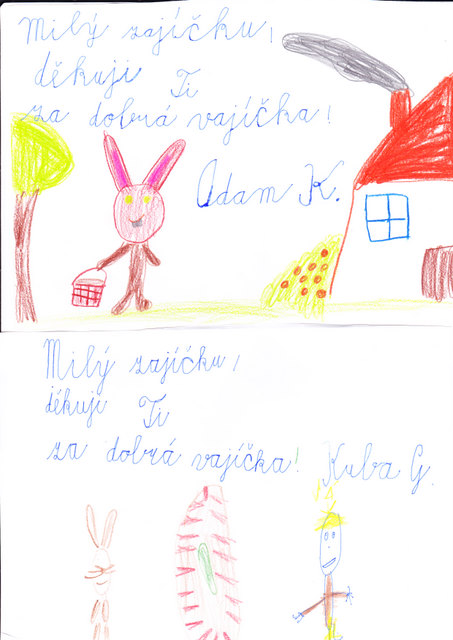 Milý zajíčku,
děkuji Ti
za dobrá vajíčka!
Adam K.
Milý zajíčku,
děkuji Ti
za dobrá vajíčka! Kuba G.